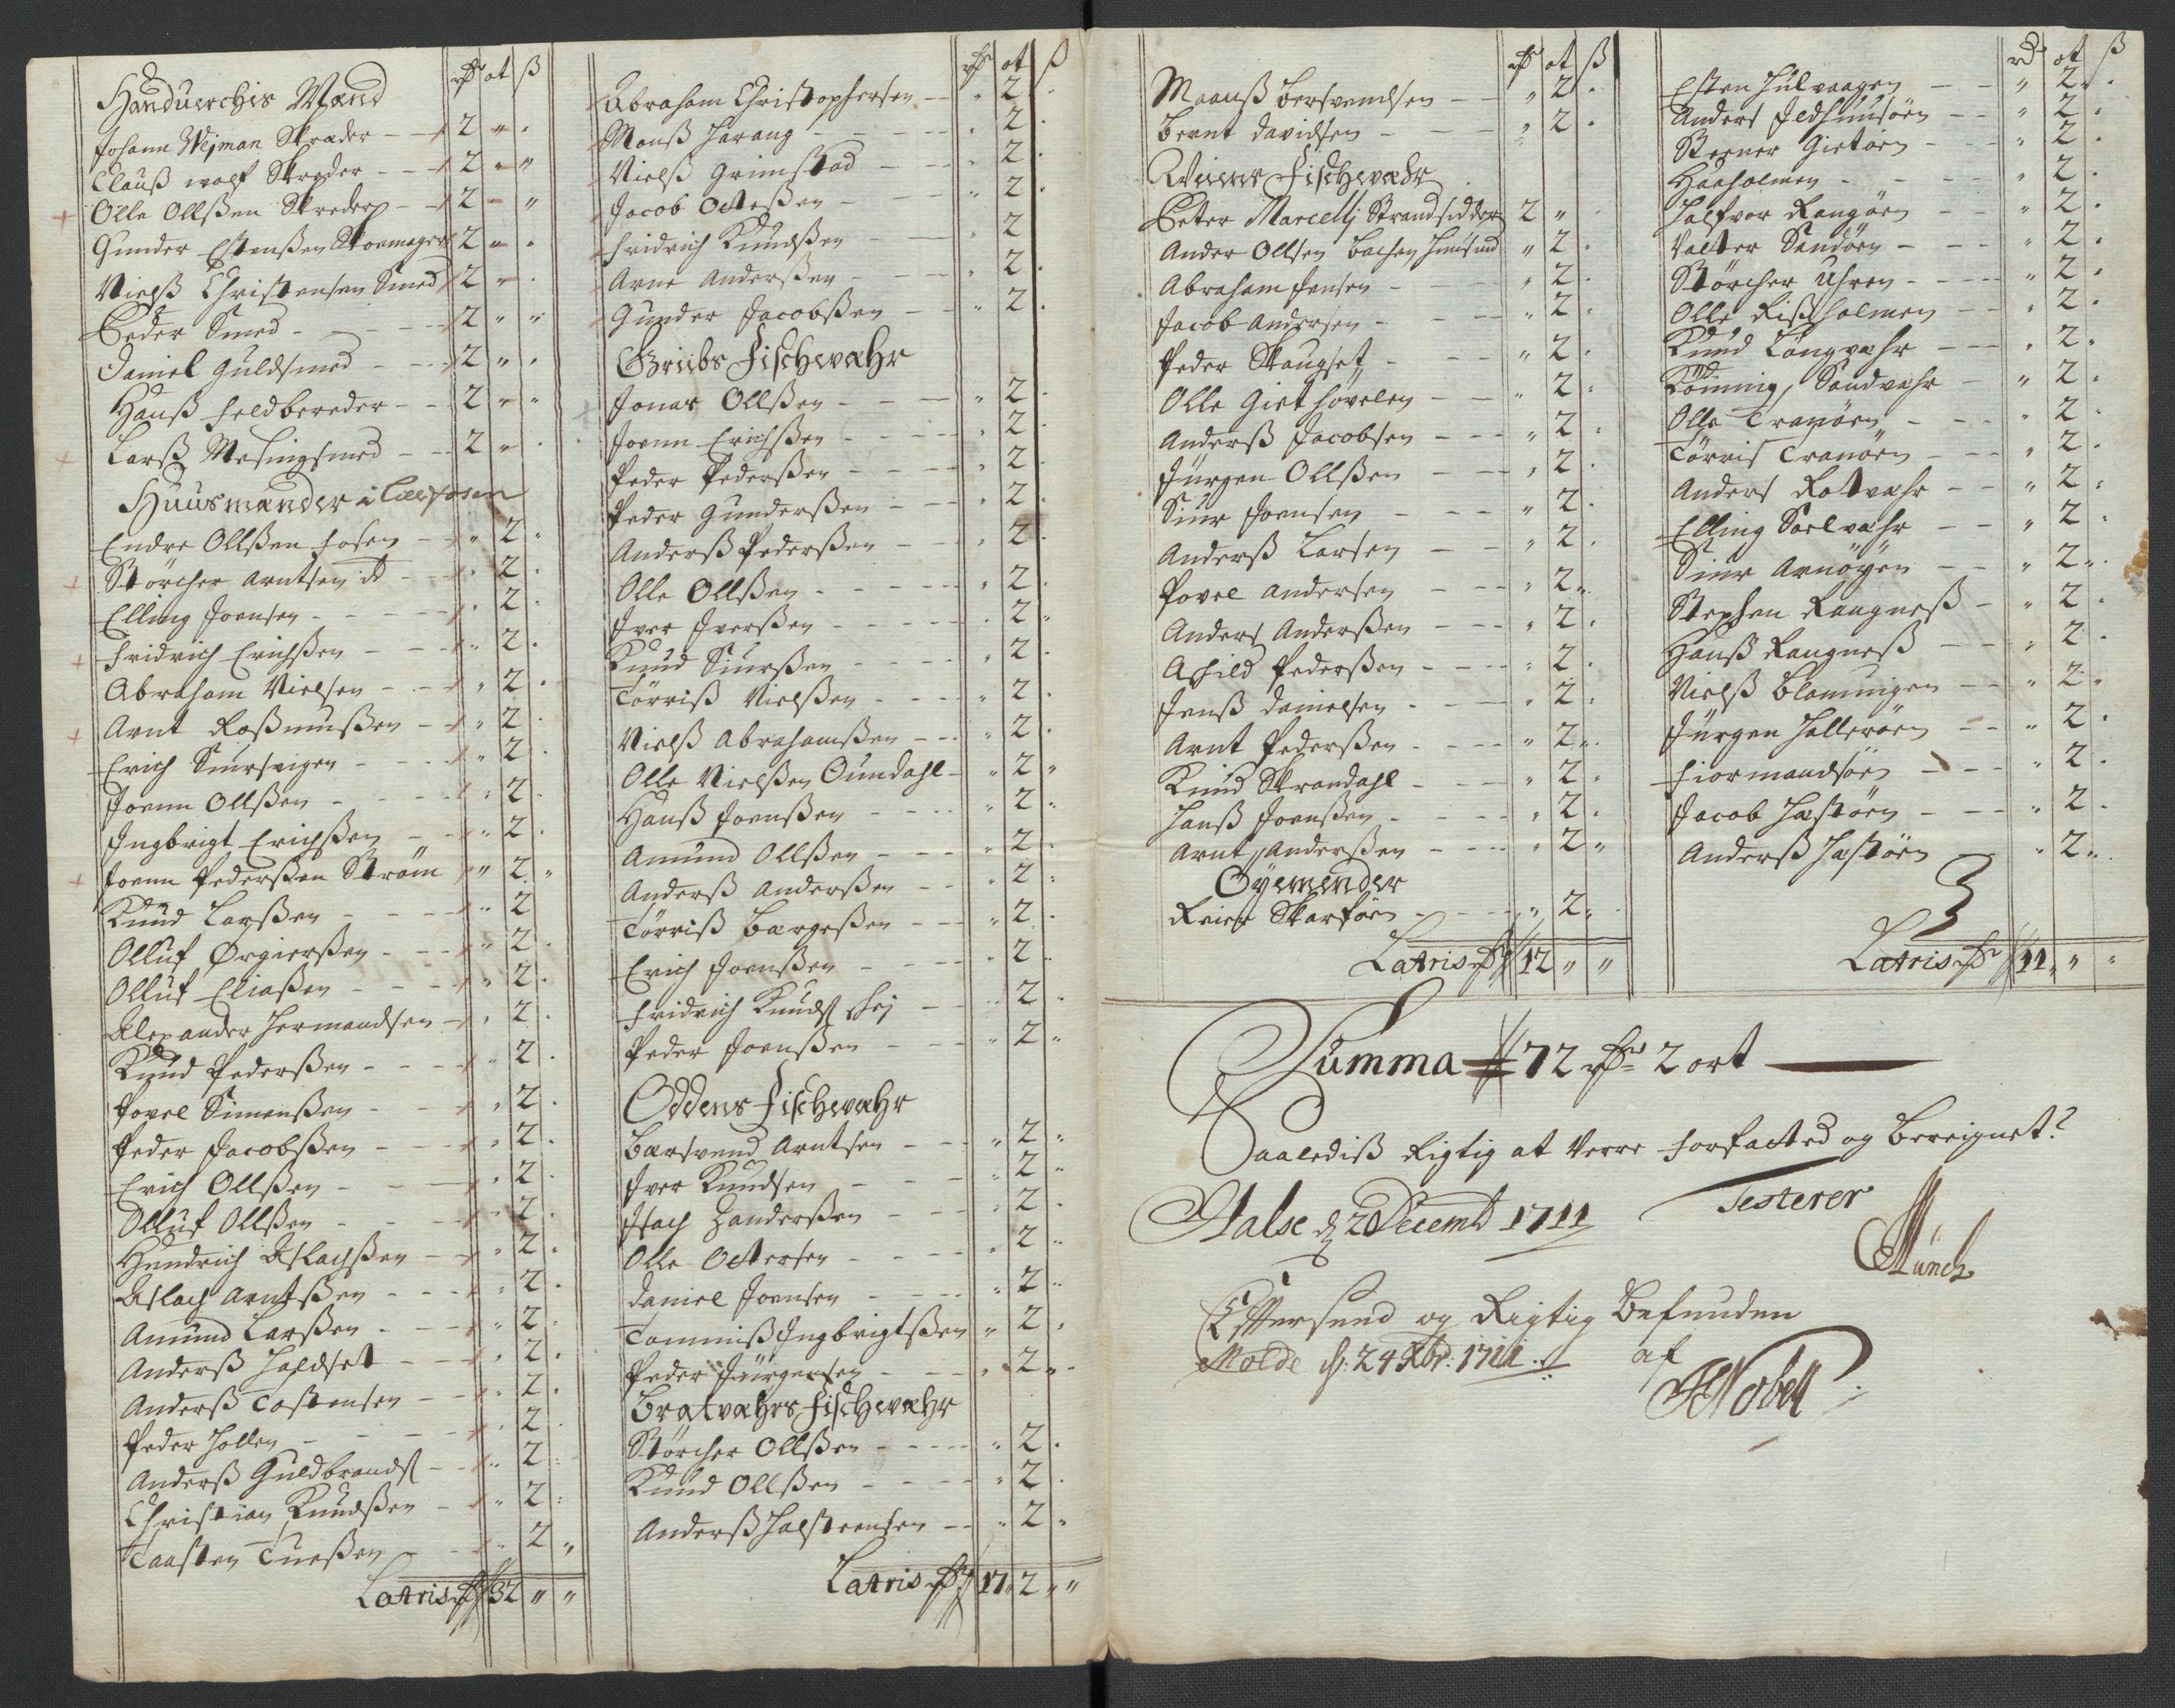 Handuerchis Mænd rdr ot ß
Johann Wejman Skræder - - 2 " "
Clauß wolf Skreder - - 2 " "
Olle Ollßen Skreder - - 2 " "
Gunder Estenßen Skoemager 2 " "
Nielß Christensen Smed 2 " "
Peder Smed - - 2 " "
Daniel Guldsmed - - 2 " "
Hanß Feldbereder - - 2 " "
Larß Mesingsmed - - 2 " "
Huusmænder i Fosen
Endre Ollßen Fosen - " 2 "
Störcher Arntsen dt - " 2 "
Elling Joensen - - " 2 "
Fridrich Erichßen - - " 2 "
Abraham Nielsen - - " 2 "
Arnt Raßmußen - - " 2 "
Erich Siursvigen - - " 2 "
Joenn Ollßen - - " 2 "
Ingbrigt Erichßen - - " 2 "
Joenn Pederßen Ström " 2 "
Knud Larßen - - " 2 "
Olluf Ørgierßen - - " 2 "
Olluf Eliaßen - - " 2 "
Alexander Hermandsen - " 2 "
Knud Pederßen - - " 2 "
Povel Simenßen - - " 2 "
Peder Jacobßen - - " 2 "
Erich Ollßen - - " 2 "
Olluf Ollßen - - " 2 "
Hendrich Aslachßen - - " 2 "
Aslach Arntßen - - " 2 "
Amund Larßen - - " 2 "
Anderß Holdset - - " 2 "
Anderß Tostensen - - " 2 "
Peder Hollen - - " 2 "
Anderß Guldbrands - " 2 "
Christian Knudßen - " 2 "
Taasten Tueßen - " 2 "
Latris rdr 32 " "
rdr ot ß
Abraham Christophersen - - " 2 "
Monß Harang - - " 2 "
Nielß Grimstad - - " 2 "
Jacob Octeßen - - " 2 "
Fridrich Knudßen - - " 2 "
Arne Anderßen - - " 2 "
Gunder Jacobßen - - " 2 "
Griibs Fischewæhr
Jonas Ollßen - - " 2 "
Joenn Erichßen - - " 2 "
Peder Pederßen - - " 2 "
Peder Gunderßen - - " 2 "
Anderß Pederßen - - " 2 "
Olle Ollßen - - " 2 "
Iver Iverßen - - " 2 "
Knud Siurßen - - " 2 "
Törriß Nielßen - - " 2 "
Nielß Abrahamßen - - " 2 "
Olle Nielßen Oundahl - " 2 "
Hanß Joenßen - - " 2 "
Amund Ollßen - - " 2 "
Anderß Anderßen - - " 2 "
Törriß Bærgeßen - - " 2 "
Erich Joenßen - - " 2 "
Fridrich Knuds - " 2 "
Peder Joenßen - - " 2 "
Oddens Fischewæhr
Bærsvend Arntsen - - " 2 "
Iver Knudsen - - " 2 "
Isach Zanderßen - - " 2 "
Olle Octersen - - " 2 "
Daniel Joensen - - " 2 "
Tommiß Ingbrigtßen " 2 "
Peder Jürgensen - - " 2 "
Bratvæhrs Fischewæhr
Störcher Ollßen - - " 2 "
Knud Ollßen - - " 2 "
Anderß Halsteensen - - " 2 "
Latris rdr 17 " 2 " "
rdr ot ß
Maanß Bersvendsen - - " 2 "
Bernt Davidsen - - " 2 "
Weiens Fischewæhr
Peter Marcellj Strandsidder 2 " "
Ander Ollsen Bachen " 2 "
Abraham Jensen - - " 2 "
Jacob Andersen - - " 2 "
Peder Skaugset - - " 2 "
Olle Giethövelen - - " 2 "
Anderß Jacobsen - - " 2 "
Jürgen Ollßen - - " 2 "
Siur Joensen - - " 2 "
Anderß Larsen - - " 2 "
Povel Andersen - - " 2 "
Anders Anderßen - - " 2 "
Ashild Pederßen - - " 2 "
Jenß Danielsen - - " 2 "
Arnt Pederßen - - " 2 "
Knud Skrondahl - - " 2 "
Hanß Joenßen - - " 2 "
Arnt Anderßen - - " 2 "
Öyemender
Reier Skarföen - - " 2 "
Latris rdr 12 " "
rd ot ß
Esten Hulvaagen - - " 2 "
Anders Jeldhuusöen - - " 2 "
Steener Gietöen - - " 2 "
Haaholmen - - " 2 "
Halfvor Rangöen - - " 2 "
Valter Sandöen - - " 2 "
Störcher Uhren - - " 2 "
Olle Rißholmen - - " 2 "
Knud Langvæhr - - " 2 "
Tönnig Sandvæhr - " 2 "
Olle Tranöen - - " 2 "
Törris Tranöen - - " 2 "
Anders Rotvæhr - - " 2 "
Elling Soelvæhr - - " 2 "
Siur Arnöyen - - " 2 "
Stephen Raugneß - " 2 "
Hanß Raugneß - - " 2 "
Nielß Blamuigen - - " 2 "
Jürgen Halleröen - - " 2 "
Fiormandsöen - - " 2 "
Jacob Hestöen - - " 2 "
Anderß Hestöen " 2 "
Latris rdr 11 " "
Summa 72 rdr 2 ort
Saalediß Rigtig at Verre forfacted og Bereignet
Testerer
Halse d 2 Decembr 1711
Münch
Efftersend og Rigtig Befunden
Molde d. 24 Xbr: 1711. af
Nobell